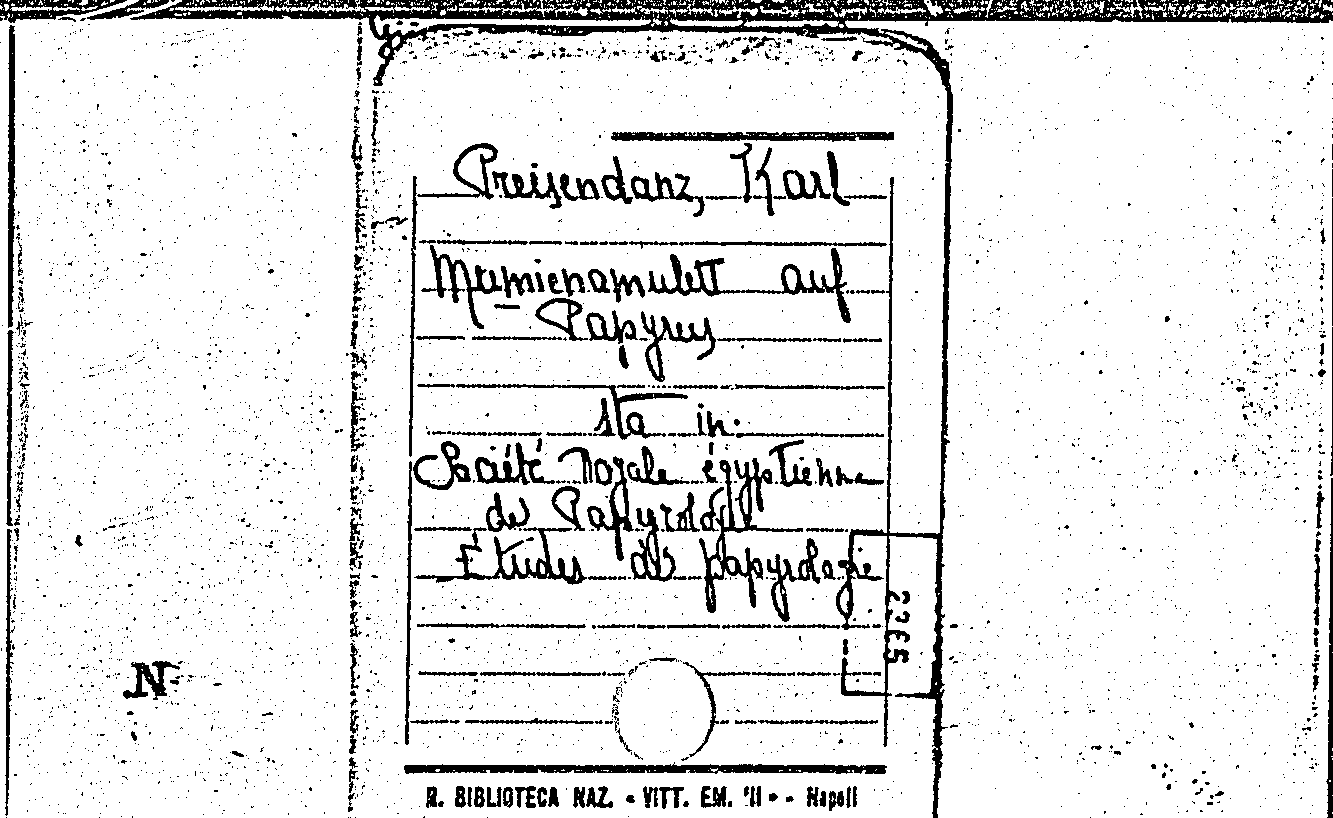 Preisendanz, Karl
Mumienamulett auf
Papyrus
sta in:
Société royale égyptienne
de Papyrologie
Études de papyrologie
2265
N
R. BIBLIOTECA NAZ. • VITT. EM. "II • - Napoli